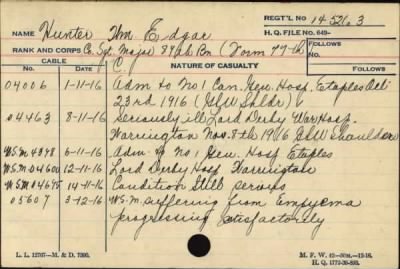 REGT'L NO 145263
NAME Hunter Wm. Edgar H.Q. FILE NO. 649-
RANK AND CORPS Co. Sgt. Major 89th Bn (Form 77th) FOLLOWS NO.
CABLE NATURE OF CASUALTY FOLLOWS
No. DATE C.
04006 1-11-16 Adm to No 1 Can. Gen. Hosp. Etaples Oct
23rd 1916 (GSW Shldr)
04463 8-11-16 Seriously ill Lord Derby War Hosp.
Warrington Nov. 8th 1916 GSW Shoulder
W.S.M 4898 6-11-16 Adm. No 1 Gen. Hosp Etaples
W.S.M 04600 12-11-16 Lord Derby Hosp Warrington
W.S.M 04695 14-11-16 Condition still serious
05607 3-12-16 W.S.M. suffering from Empyema
progressing satisfactorily
L. L. 12707—M. & D. 7390. M. F. W. 42—50M.—12-16.
H. Q. 1772-39-893.